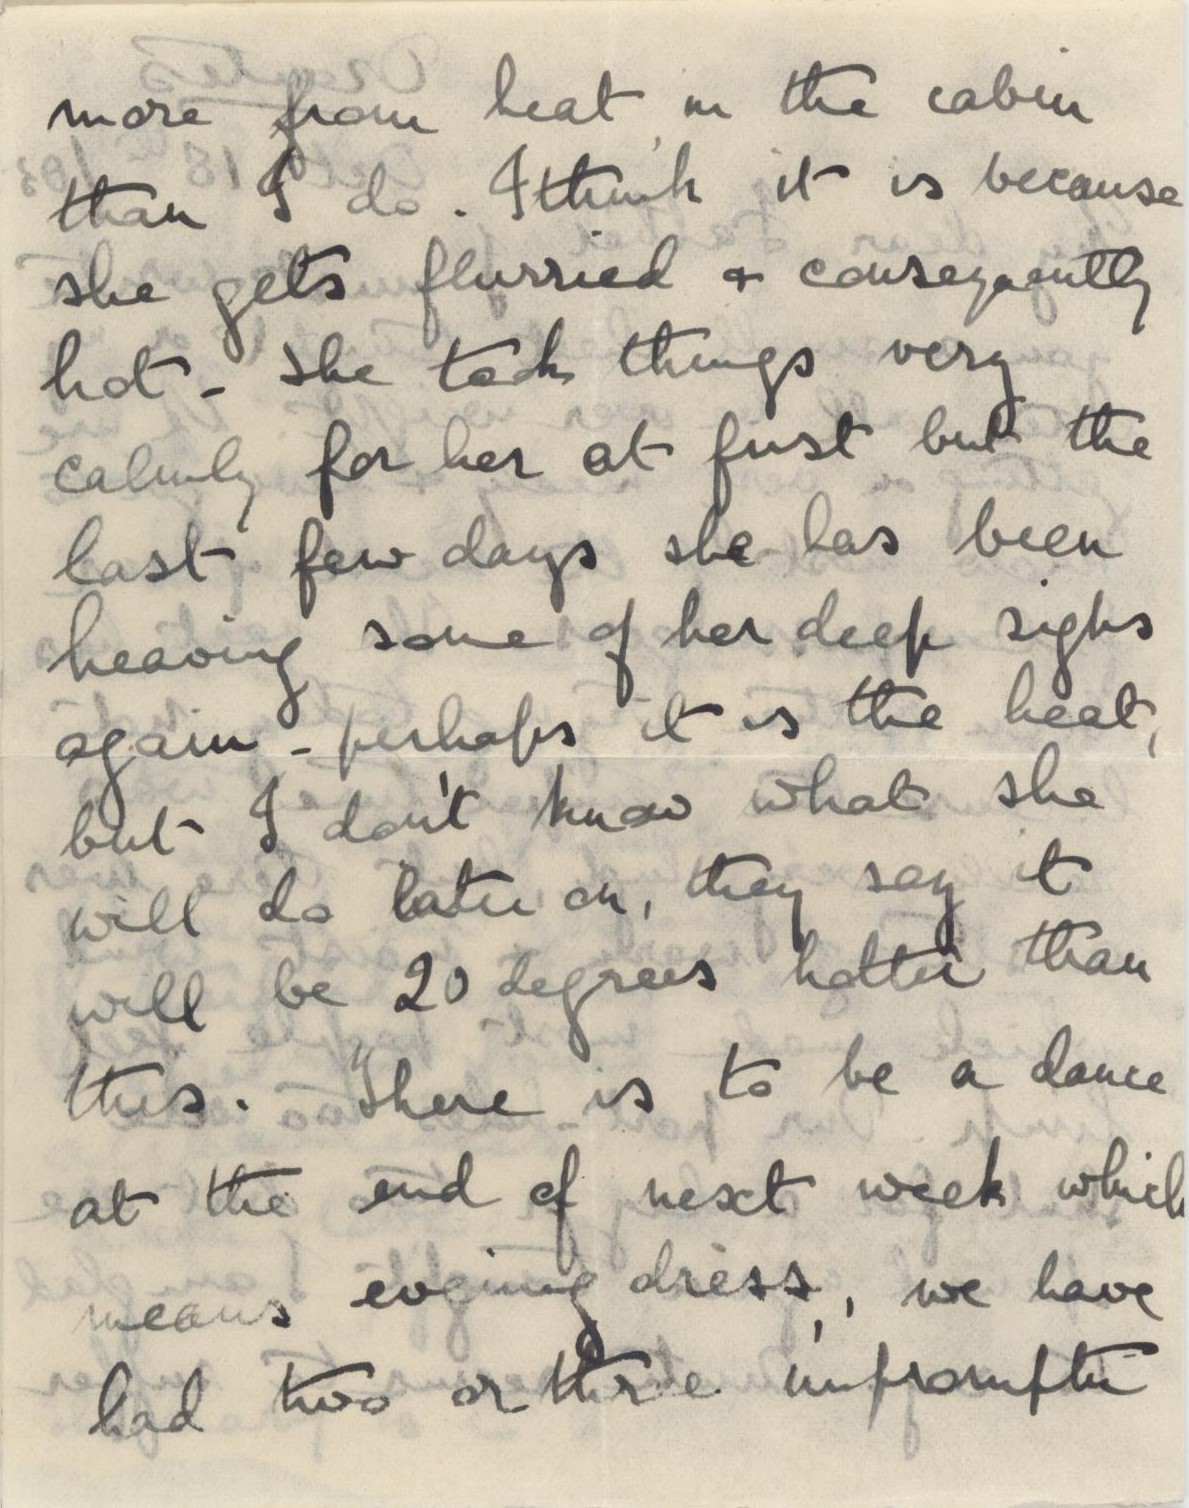 more from heat in the cabin
than I do. I think it is because
she gets flurried & consequently
hot - She took things very
calmly for her at first but the
last few days she has been
heaving some of her deep sighs
again - perhaps it is the heat,
but I don't know what she
will do later on, they say it
will be 20 degrees hotter than
this. There is to be a dance
at the end of next week which
means evening dress, we have
had two or three impromptu